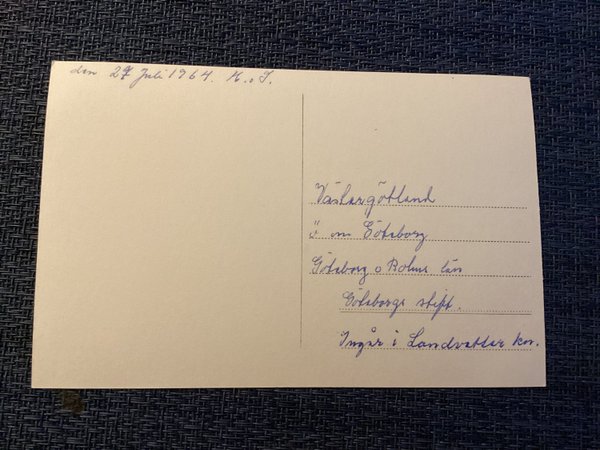 den 27 Juli 1964. K. o J.
Västergötland
ö om Göteborg
Göteborg o Bohus län
Göteborgs stift.
Ingår i Landvetter kom.